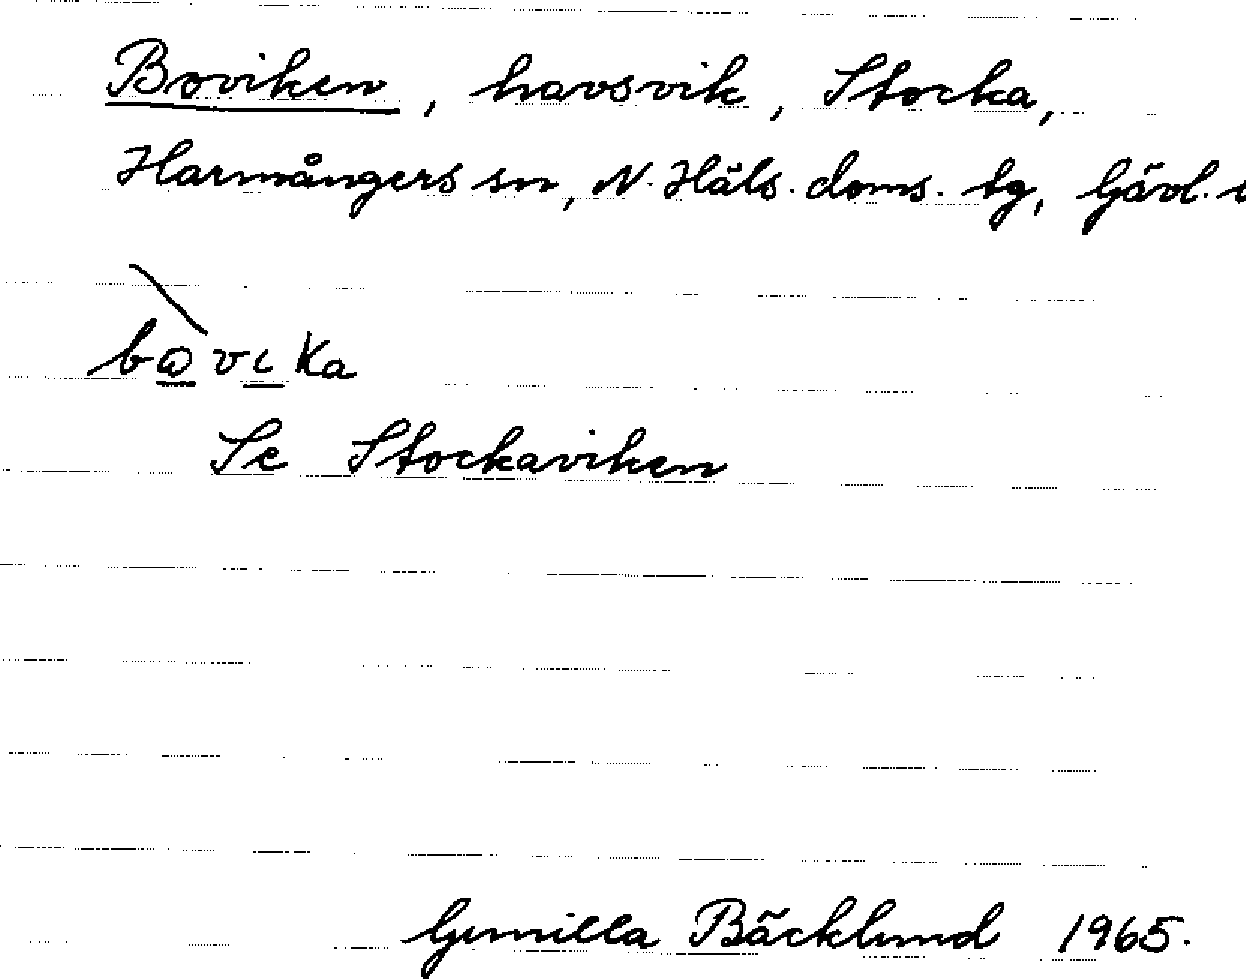 Boviken, havsvik, Stocka,
Harmångers sn, N. Häls. doms. tg, Gävl.
Se Stockaviken
Gunilla Bäcklund 1965.